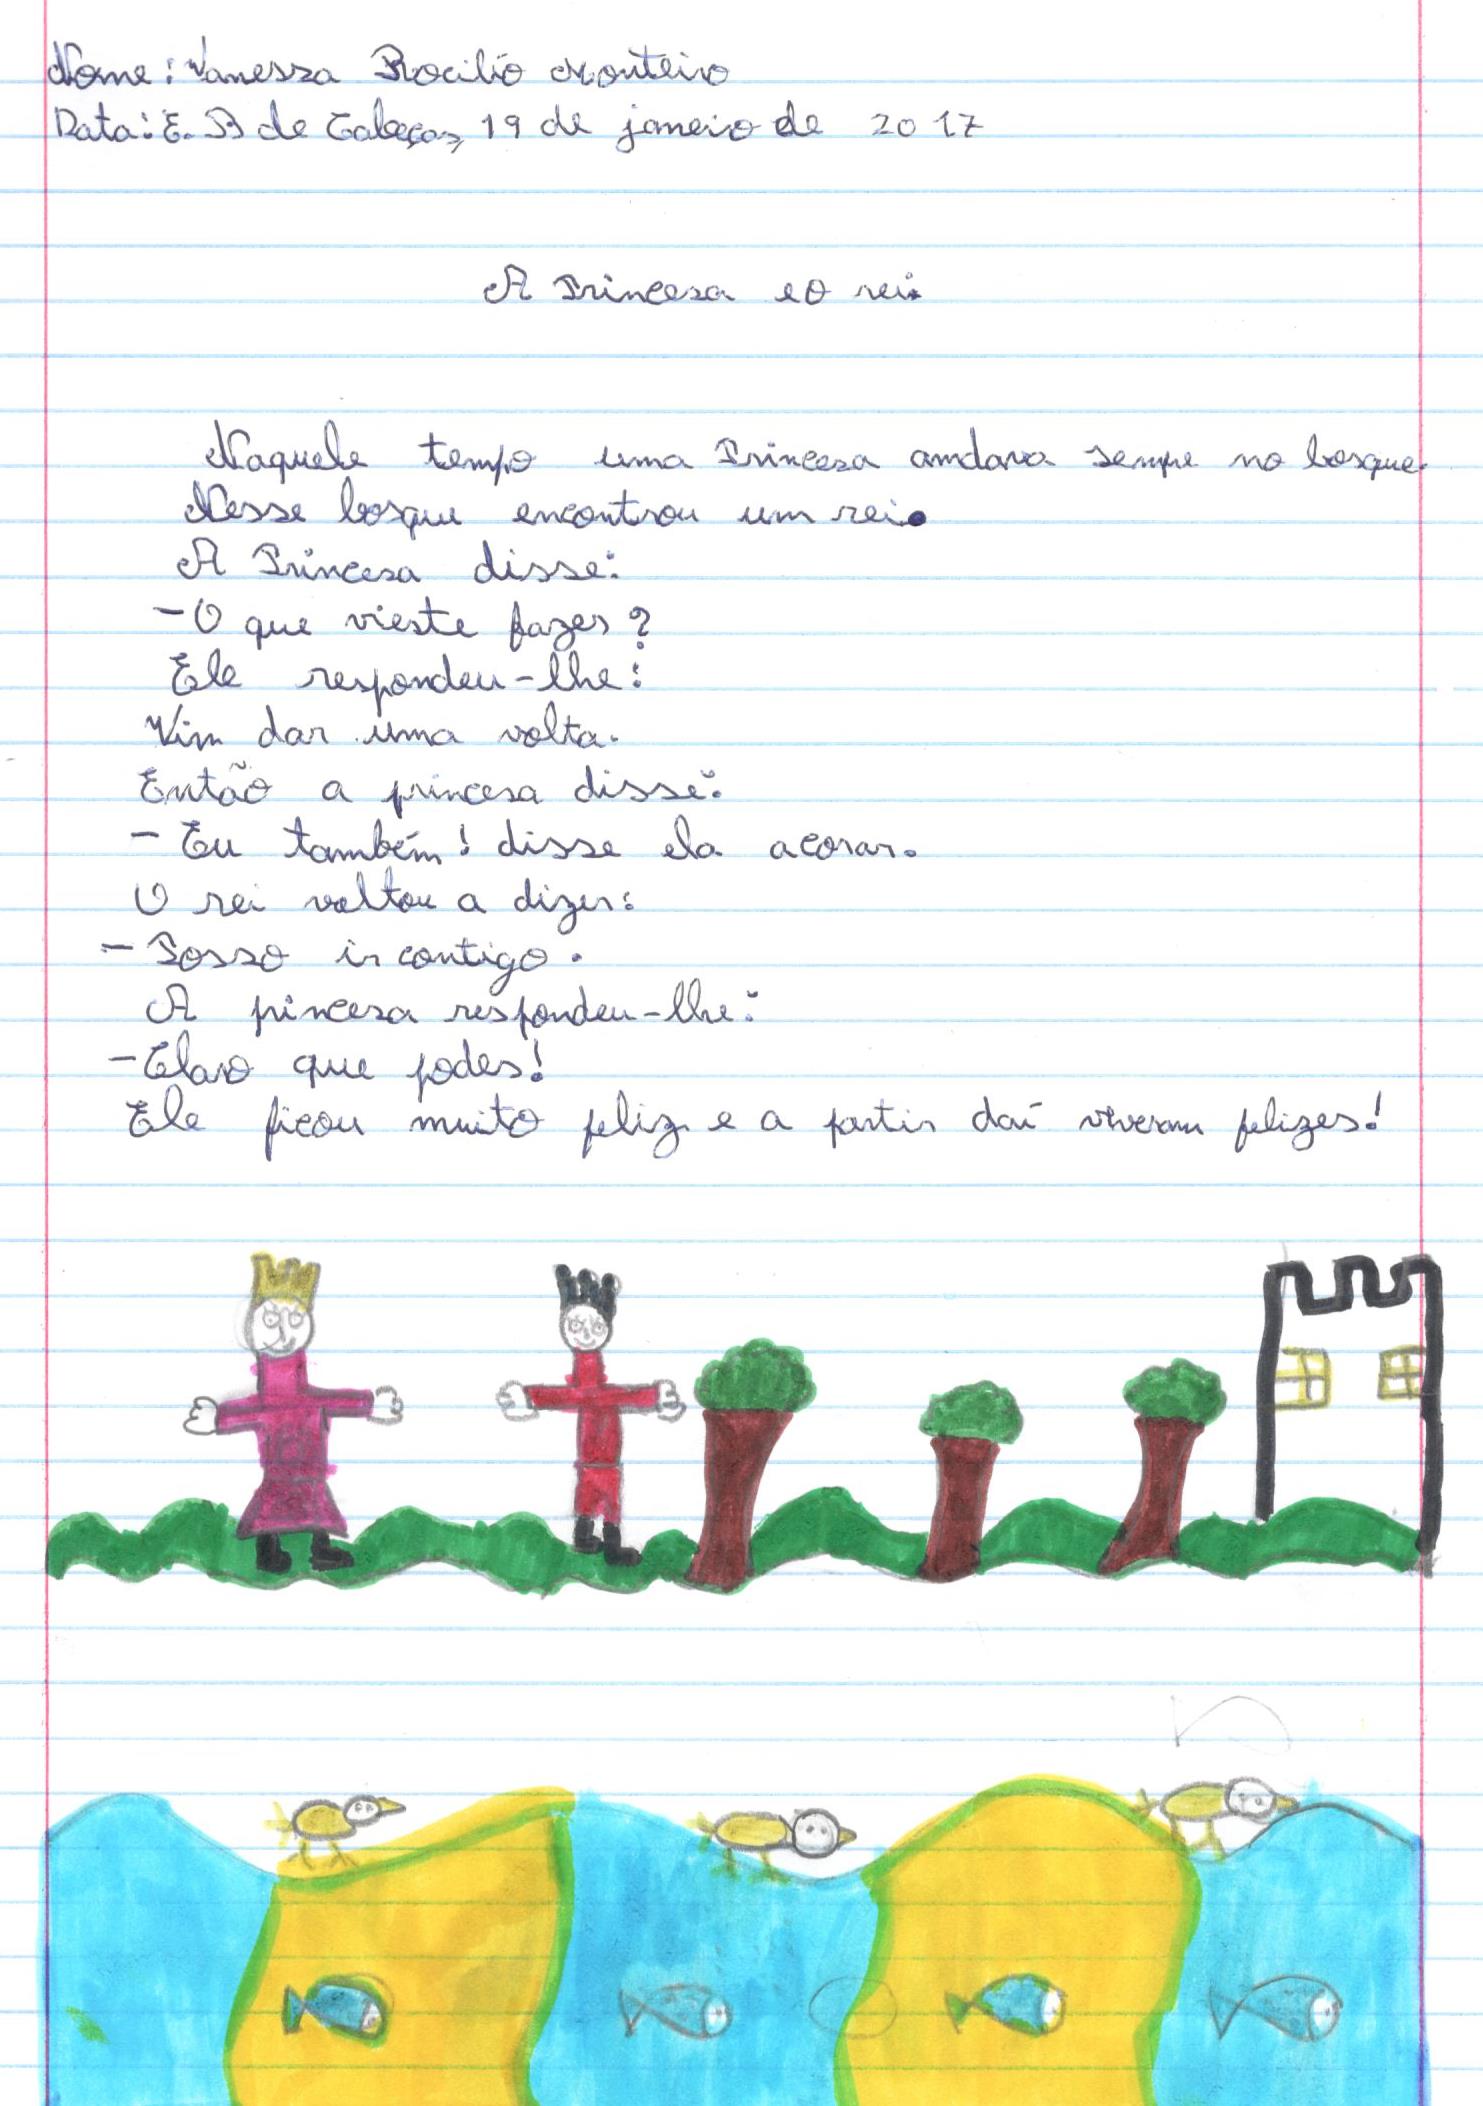 Nome: Vanessa Rocilio Monteiro
Data: E. B de Cabeças, 19 de janeiro de 2017
A Princesa e o rei.
Naquele tempo uma Princesa andava sempre no bosque.
Nesse bosque encontrou um rei.
A Princesa disse:
- O que vieste fazer?
Ele respondeu-lhe:
Vim dar uma volta.
Então a princesa disse:
- Eu também! disse ela acorar.
O rei voltou a dizer:
- Posso ir contigo.
A pincesa respondeu-lhe:
- Claro que podes!
Ele ficou muito feliz e a partir daí viveram felizes!